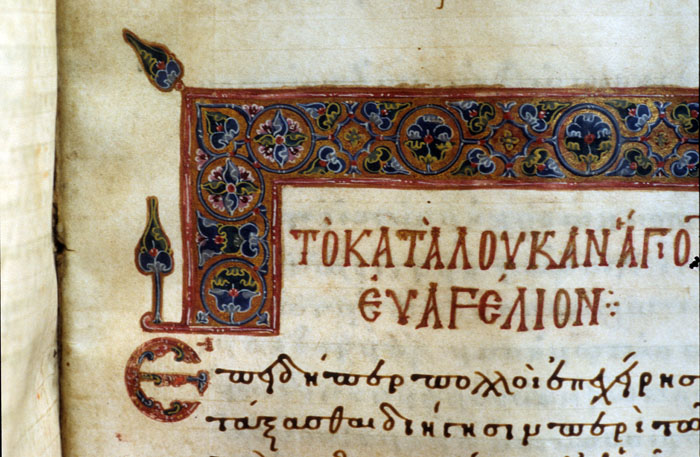 ΤὸΚΑΤᾺΛΟΥΚΑΝἍΓΙΟ
ἘΥΑΓΓΈΛΙΟΝ
Ἐπειδήπερ πολλοὶ ἐπεχείρησ
τάξασθαι διήγησιν περὶ τῶ